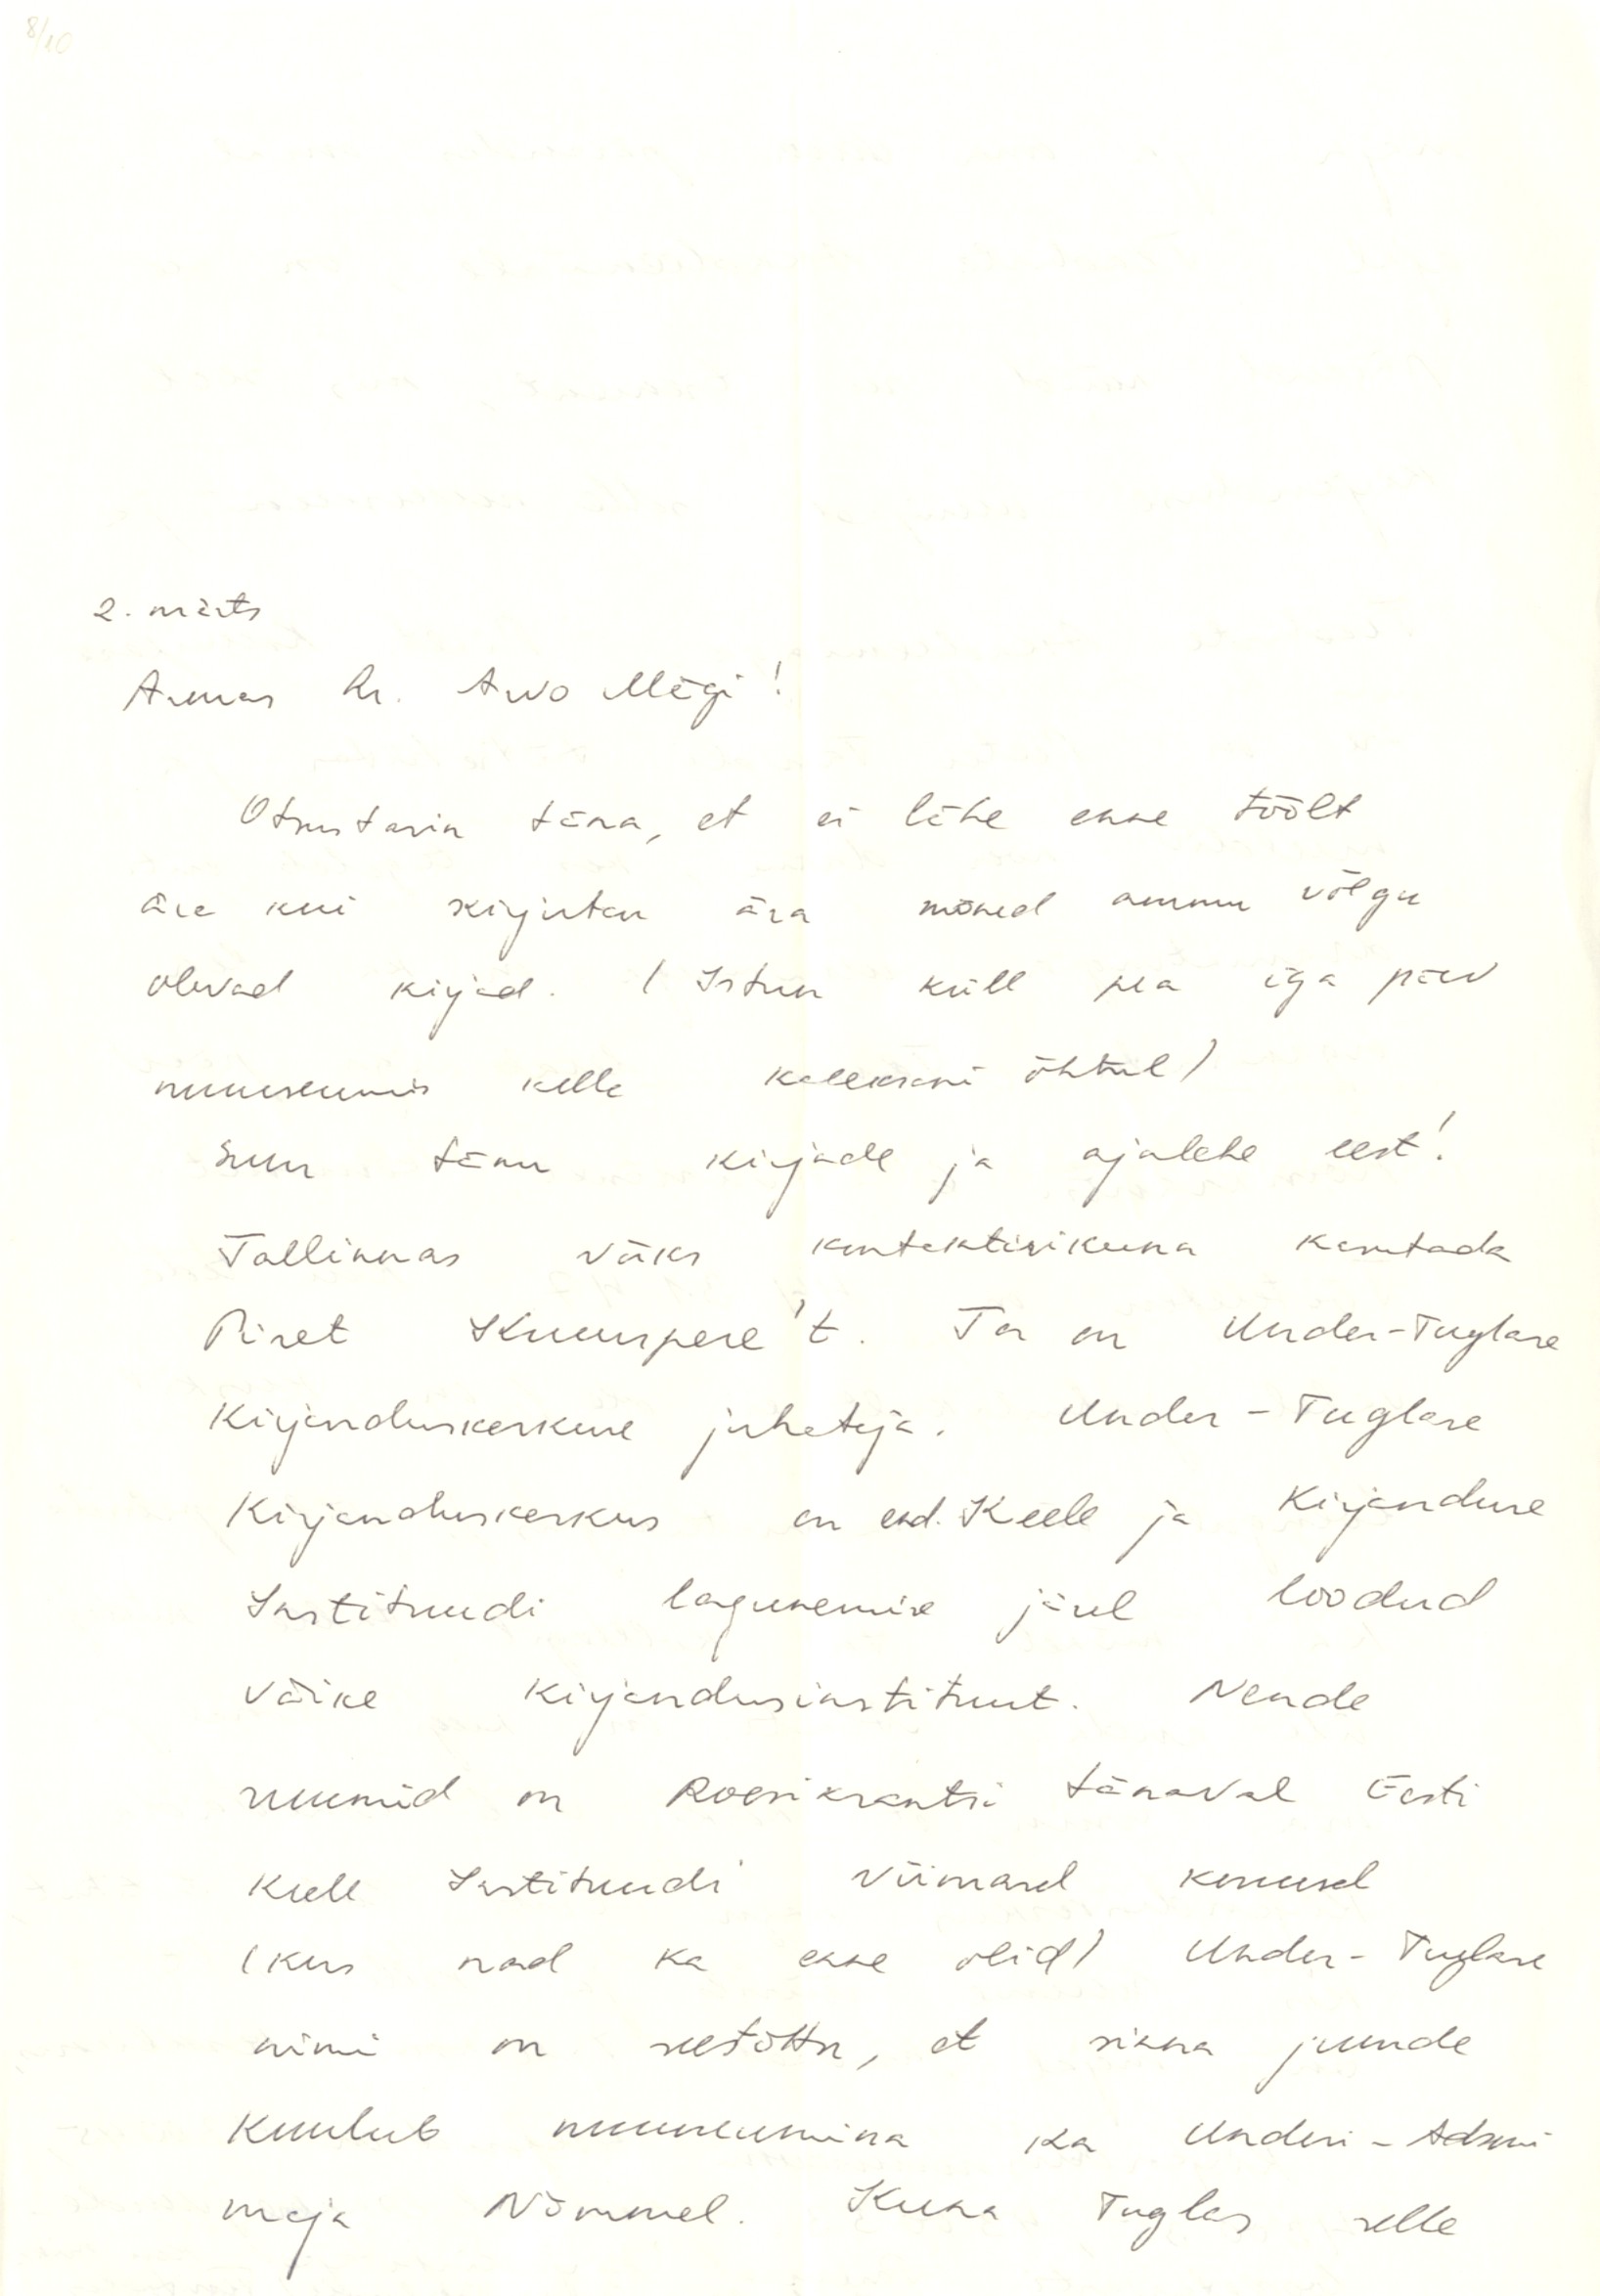 8/10
2. märts
Armas hr. Arvo Mägi!
Otsustasin täna, et ei lähe enne töölt
ära kui kirjutan ära mõned ammu võlgu
olevad kirjad. (Istun küll pea iga päev
muuseumis kella kaheksani õhtul)
Suur tänu kirjade ja ajalehe eest!
Tallinnas võiks kontaktisikuna kasutada
Piret Kruuspere't. Ta on Under-Tuglase
Kirjanduskeskuse juhataja. Under-Tuglase
Kirjanduskeskus on end. Keele ja Kirjanduse
Instituudi lagunemise järel loodud
väike kirjandusinstituut. Nende
ruumid on Roosikrantsi tänaval Eesti
Keele Instituudi viimasel korrusel
(kus nad ka enne olid) Under-Tuglase
nimi on seetõttu, et sinna juurde
kuulub muuseumina ka Underi-Adsoni
maja Nõmmel. Kuna Tuglas selle